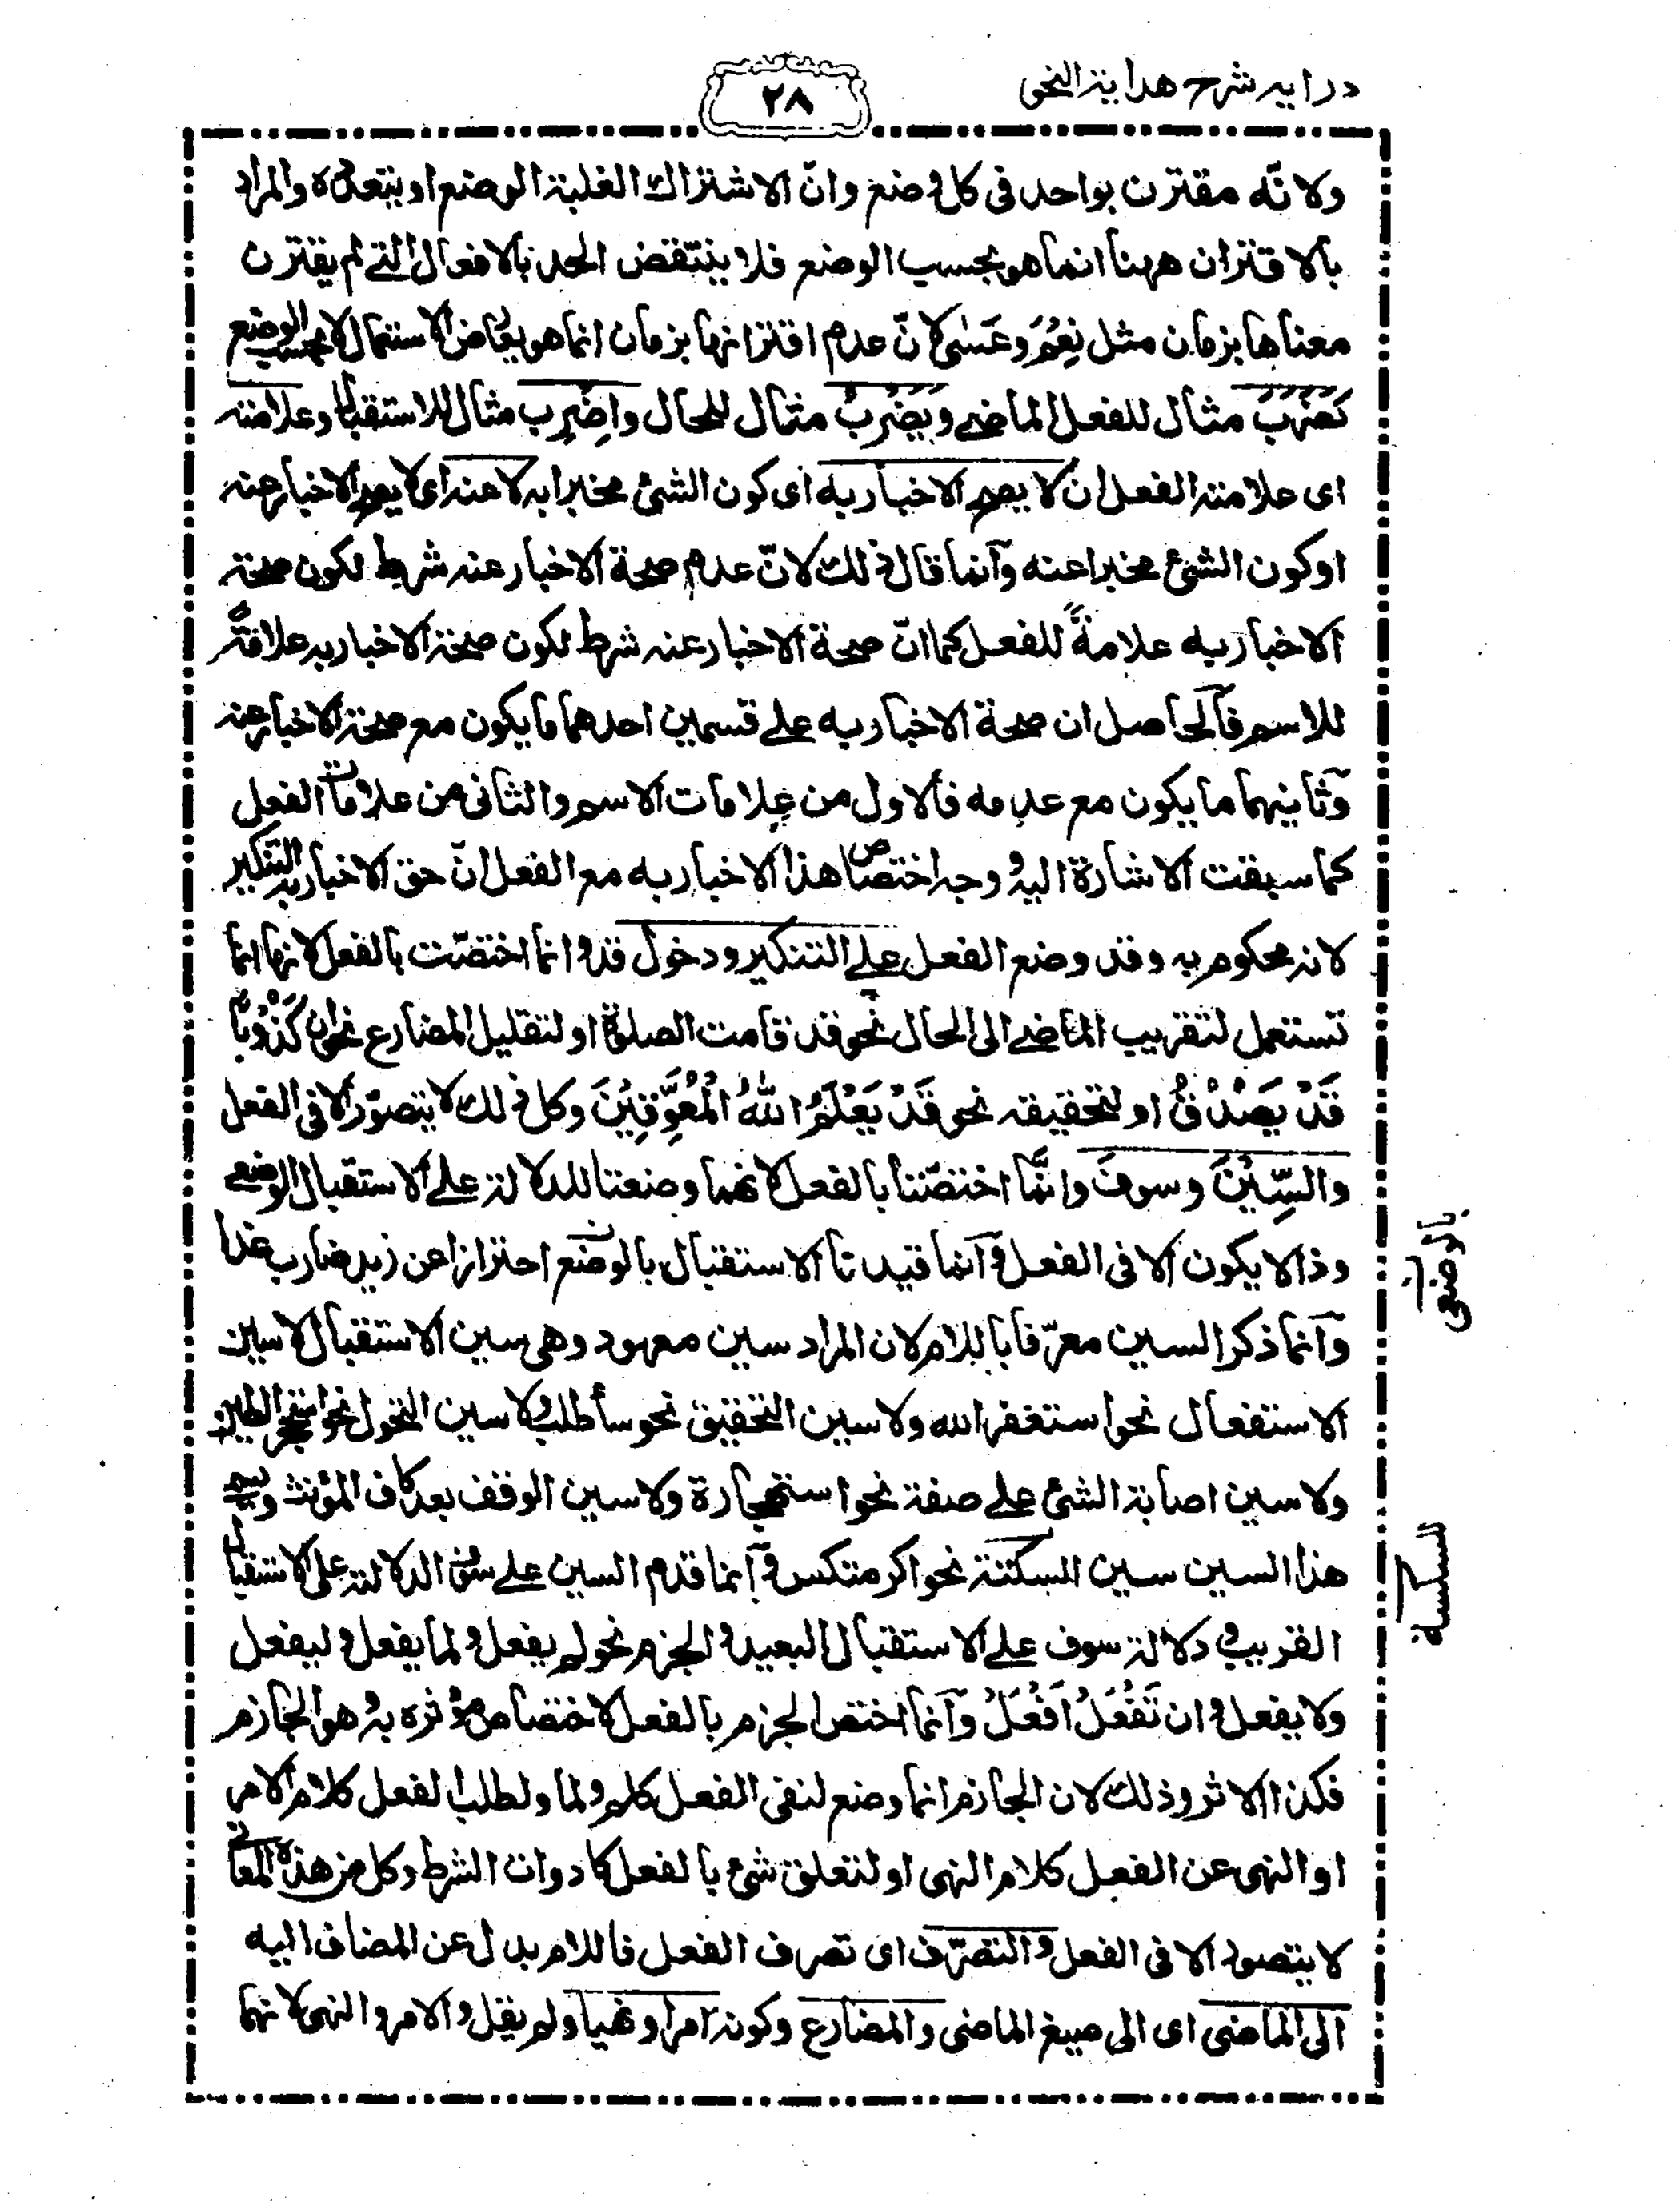 درايہ شرح هداية النحو
٢٨
ولانّه مقترن بواحد فى كل وضع وانّ الاشتراك لغلبة الوضع او بتعدده والمراد
بالاقتران ههنا انما هو بحسب الوضع فلا ينتقض الحد بالافعال التى لم يقترن
معناها بزمان مثل نِعْمَ وعَسٰى لانّ عدم اقترانها بزمان انما هو بعارض الاستعمال لا بحسب الوضع
كضَرَبَ مثال للفعل الماضى ويَضْرِبُ مثال للحال واِضْرِب مثال للاستقبال وعلامته
اى علامة الفعل ان لا يصح الاخبار به اى كون الشئ مخبرا به لا عنه اى لا يصح الاخبار عنه
او كون الشئ مخبرا عنه وآنما قال ذلك لانّ عدم صحة الاخبار عنه شرط لكون صحة
الاخبار به علامةً للفعل كما انّ صحة الاخبار عنه شرط لكون صحة الاخبار به علامةً
للاسم فآلحاصل ان صحة الاخبار به على قسمين احدهما ما يكون مع صحة الاخبار عنه
وثانيهما ما يكون مع عدمه فالاول من علامات الاسم والثانى من علامات الفعل
كما سبقت الاشارة اليه و وجه اختصاص هذا الاخبار به مع الفعل انّ حق الاخبار به التنكير
لانه محكوم به وقد وضع الفعل على التنكير ودخول قد وانما اختصّت بالفعل لانها انما
تستعمل لتقريب الماضى الى الحال نحو قد قامت الصلوة او لتقليل المضارع نحو ان كَذُوبًا
قَدْ يَصْدُقُ او لتحقيقه نحو قَدْ يَعْلَمُ اللهُ الْمُعَوِّقِيْنَ وكل ذلك لا يتصوّر الا فى الفعل
والسِّيْنَ وسوفَ وانّما اختصّتا بالفعل لانهما وضعتا للدلالة على الاستقبال الوضعى
وذا لا يكون الا فى الفعل وآنما قيدنا الاستقبال بالوضع احترازا عن زيد ضارب غدا
وآنما ذكر السين معرّفا باللام لان المراد سين معهود وهى سين الاستقبال لا سين
الاستفعال نحو استغفر الله ولا سين التحقيق نحو سأطلب ولا سين التحول نحو استحجر الطين
ولا سين اصابة الشئ على صفة نحو استحجارة ولا سين الوقف بعد كاف المؤنث ويسمى
هذا السين سين السكتة نحو اكرمتكس وآنما قدم السين على سوف الدلالته على الاستقبال
القريب و دلالة سوف على الاستقبال البعيد والجزم نحو لم يفعل ولما يفعل وليفعل
ولا يفعل وان تَفْعَلْ اَفْعَلْ وآنما اختص الجزم بالفعل لاختصاص مؤثره به وهو الجازم
فكذا الاثر وذلك لان الجازم انما وضع لنفى الفعل كلم ولما ولطلب الفعل كلام الامر
او النهى عن الفعل كلام النهى او لتعلق شئ بالفعل كادوات الشرط وكل من هذه المعانى
لا يتصور الا فى الفعل والتصرّف اى تصرف الفعل فاللام بدل عن المضاف اليه
الى الماضى اى الى صيغ الماضى والمضارع وكونه امرا ونهيا ولم يقل والامر والنهى لانهما
بالوضعى
للسكتة